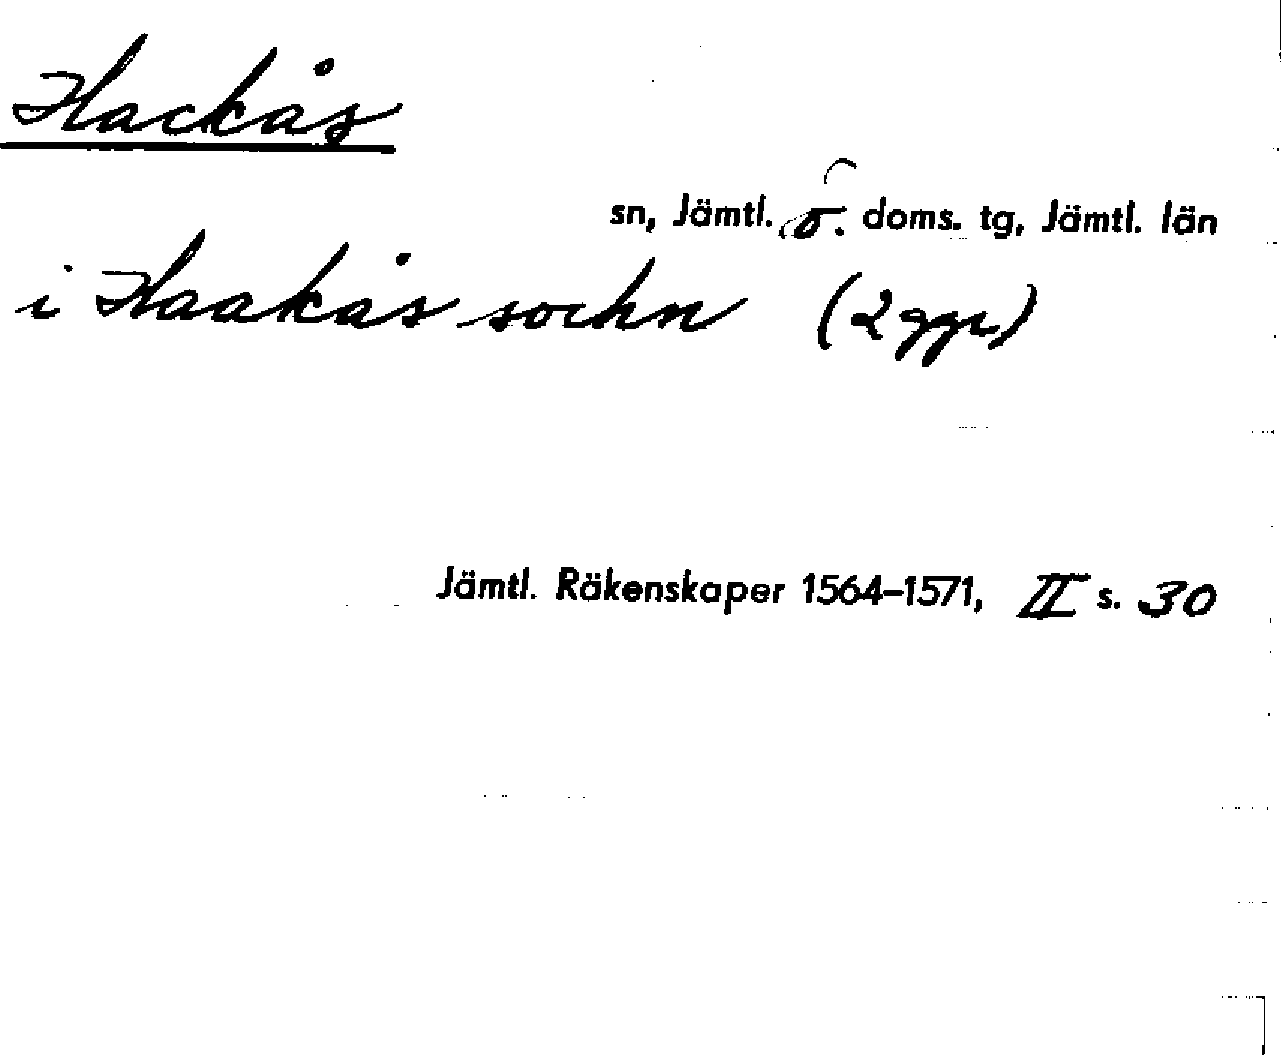 Hackås
sn, Jämtl. ö. doms. tg, Jämtl. län
i Haakås sochn (2 ggr)
Jämtl. Räkenskaper 1564–1571, II s. 30